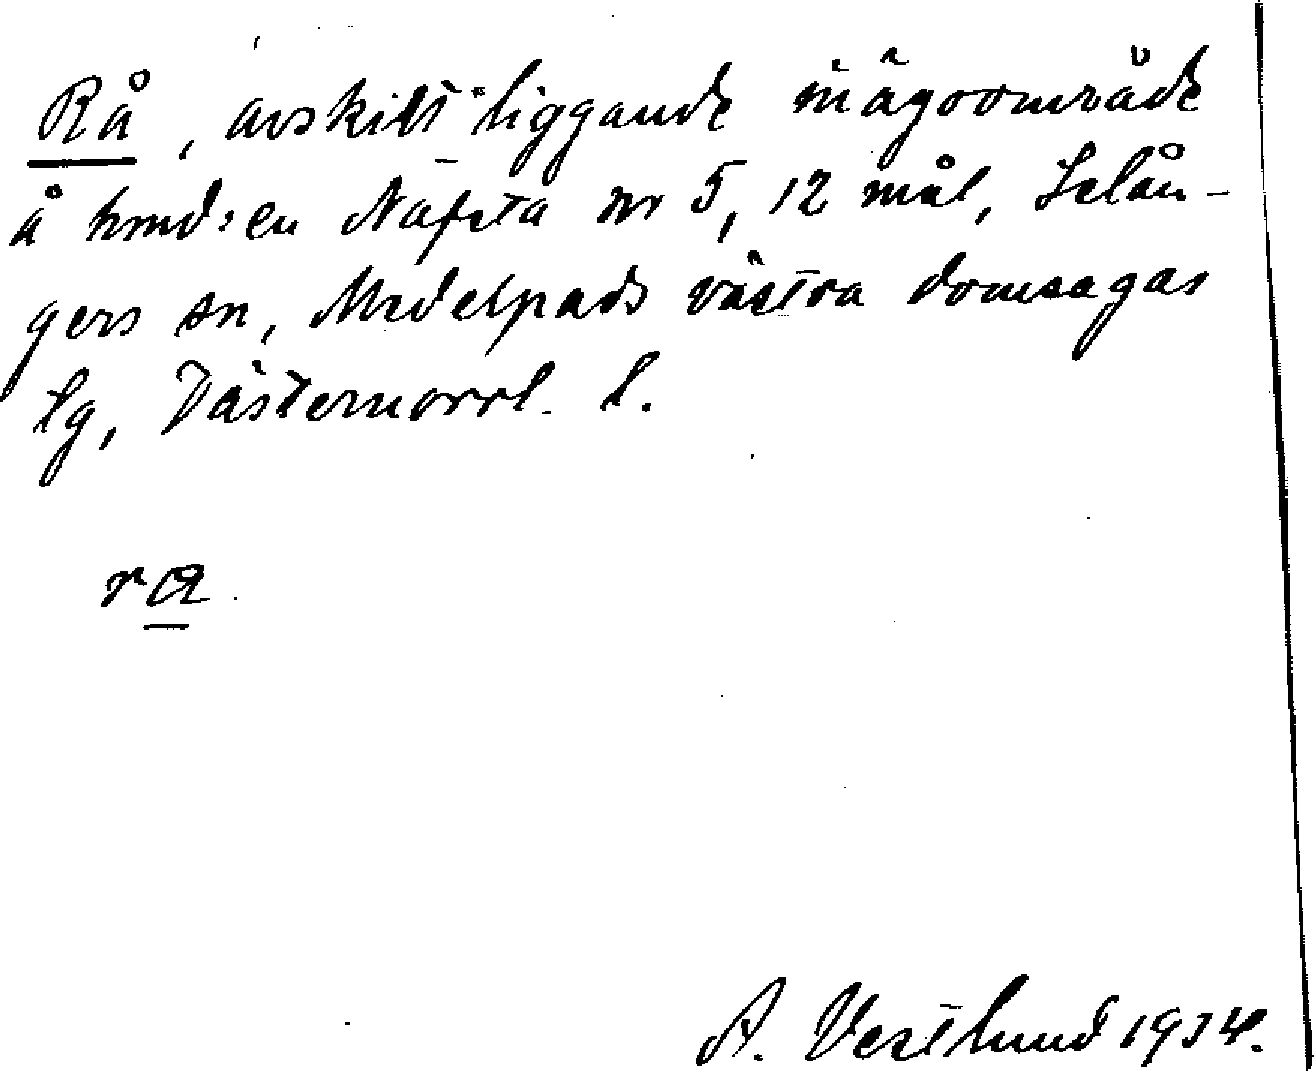 Rå, avskilt liggande inägoområde
å hmd:en Näfsta nr 5, 12 mål, Selån-
gers sn, Medelpads västra domsagas
lg, Västernorrl. l.
ra.
A. Vestlund 1934.